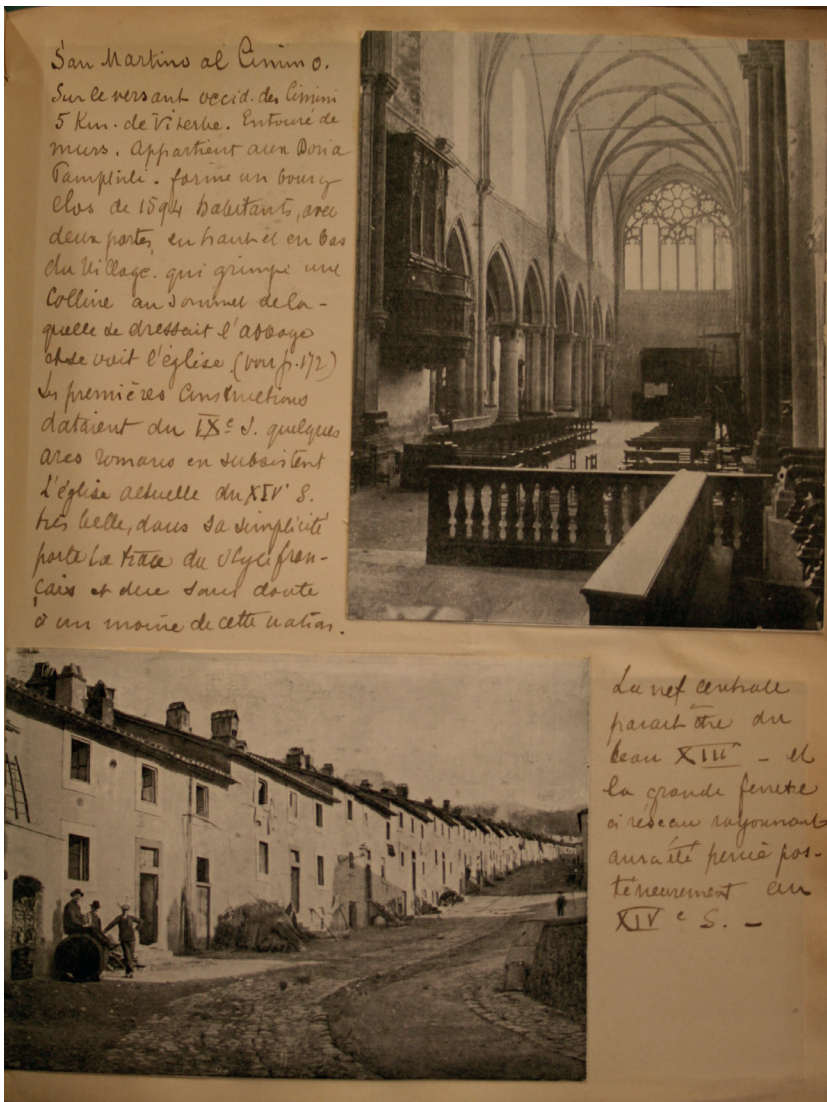 San Martino al Cimino.
Sur le versant occid. des Cimini
5 Km. de Viterbe. Entouré de
murs. Appartient aux Doria
Pamphili. forme un bourg
clos de 1594 habitants, avec
deux portes, en haut et en bas
du village. qui grimpe une
Colline au sommet de la-
quelle se dressait l'abbaye
et se voit l'église (voir p. 172)
Les premières Constructions
dataient du IXe S. quelques
arcs romans en subsistent
L'église actuelle du XIVe S.
très belle, dans sa simplicité
porte la trace du style fran-
çais et due sans doute
à un moine de cette nation.
La nef centrale
parait être du
beau XIIIe - et
la grande fenetre
à réseau rayonnant
aura été percée pos-
térieurement au
XIVe S. -